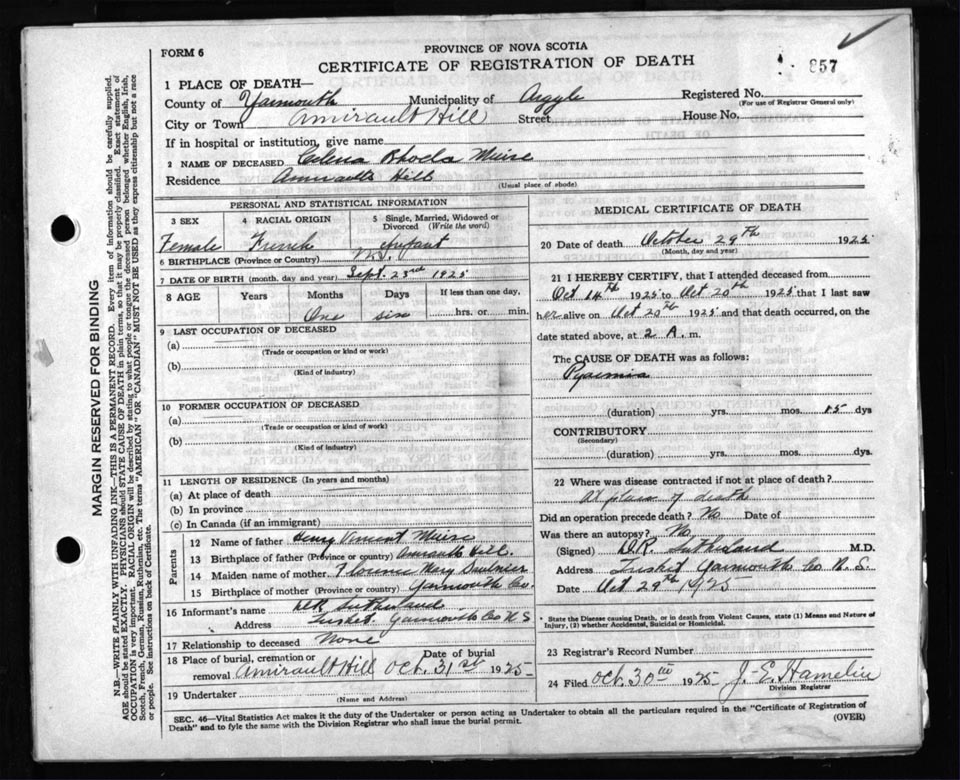 FORM 6
PROVINCE OF NOVA SCOTIA
CERTIFICATE OF REGISTRATION OF DEATH
857
1 PLACE OF DEATH—
County of Yarmouth Municipality of Argyle Registered No.
(For use of Registrar General only)
City or Town Amirault Hill Street House No.
If in hospital or institution, give name
2 NAME OF DECEASED Celena Rhoda Muise
Residence Amiraults Hill
(Usual place of abode)
PERSONAL AND STATISTICAL INFORMATION
3 SEX 4 RACIAL ORIGIN 5 Single, Married, Widowed or Divorced (Write the word)
Female French Infant
6 BIRTHPLACE (Province or Country) N.S.
7 DATE OF BIRTH (month, day and year) Sept. 23rd 1925
8 AGE Years Months Days If less than one day,
One six hrs. or min.
9 LAST OCCUPATION OF DECEASED
(a)
(Trade or occupation or kind or work)
(b)
(Kind of industry)
10 FORMER OCCUPATION OF DECEASED
(a)
(Trade or occupation or kind of work)
(b)
(Kind of industry)
11 LENGTH OF RESIDENCE (In years and months)
(a) At place of death
(b) In province
(c) In Canada (if an immigrant)
Parents
12 Name of father Henry Vincent Muise
13 Birthplace of father (Province or country) Amiraults Hill.
14 Maiden name of mother Florence Mary Doulnier
15 Birthplace of mother (Province or country) Yarmouth Co.
16 Informant's name DR Sutherland
Address Tusket Yarmouth Co N S
17 Relationship to deceased None
18 Place of burial, cremation or removal Amirault Hill Date of burial Oct. 31st 1925
19 Undertaker
(Name and Address)
MEDICAL CERTIFICATE OF DEATH
20 Date of death October 29th 1925
(Month, day and year)
21 I HEREBY CERTIFY, that I attended deceased from
Oct 14th 1925 to Oct 20th 1925 that I last saw
her alive on Oct 20th 1925 and that death occurred, on the
date stated above, at 2 A. m.
The CAUSE OF DEATH was as follows:
Pyaemia
(duration) yrs. mos. 15 dys
CONTRIBUTORY
(Secondary)
(duration) yrs. mos. dys.
22 Where was disease contracted if not at place of death?
At place of death
Did an operation precede death? No Date of
Was there an autopsy? No
(Signed) D.R. Sutherland M.D.
Address Tusket Yarmouth Co N. S.
Date Oct 29th 1925
* State the Disease causing Death, or in death from Violent Causes, state (1) Means and Nature of Injury, (2) whether Accidental, Suicidal or Homicidal.
23 Registrar's Record Number
24 Filed Oct. 30th 1925 J. E. Hamelin
Division Registrar
SEC. 46—Vital Statistics Act makes it the duty of the Undertaker or person acting as Undertaker to obtain all the particulars required in the "Certificate of Registration of
Death" and to fyle the same with the Division Registrar who shall issue the burial permit.
(OVER)
MARGIN RESERVED FOR BINDING
N.B.—WRITE PLAINLY WITH UNFADING INK—THIS IS A PERMANENT RECORD. Every item of information should be carefully supplied.
AGE should be stated EXACTLY. PHYSICIANS should STATE CAUSE OF DEATH in plain terms, so that it may be properly classified. Exact statement of
OCCUPATION is very important. RACIAL ORIGIN will be described by stating to what people or tongue the deceased person belonged whether English, Irish,
Scotch, French, German, Russian, Ruthenian, etc. The terms "AMERICAN" OR "CANADIAN" MUST NOT BE USED as they express citizenship but not a race
or people. See instructions on back of Certificate.